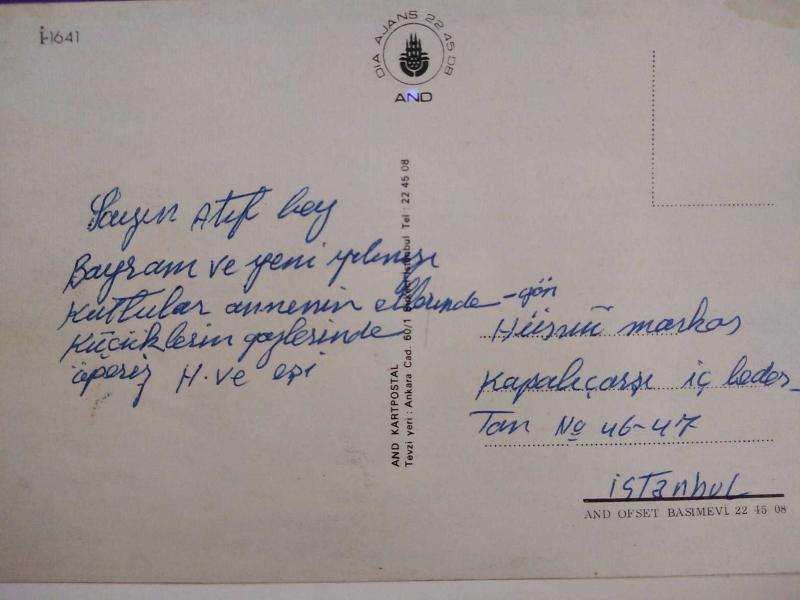 İ-1641
DIA AJANS 22 45 08
AND
Sayın Atıf bey
Bayram ve yeni yılınızı
Kutlular annenin ellerinde
Küçüklerin gözlerinde
öperiz H. ve eşi
AND KARTPOSTAL
Tevzi yeri : Ankara Cad. 60/1 İstanbul Tel : 22 45 08
-gön
Hüsnü markos
Kapalıçarşı iç bedes_
Tan No 46-47
istanbul
AND OFSET BASIMEVİ 22 45 08